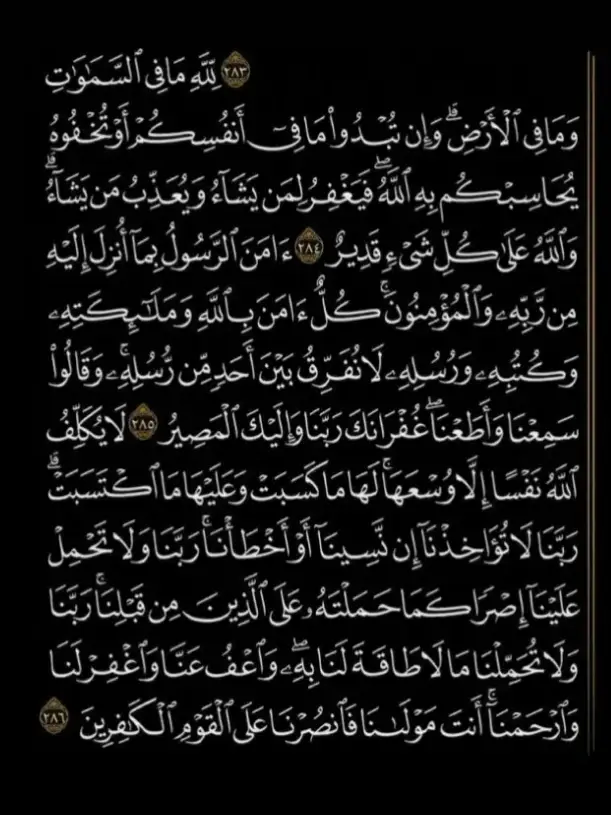 ٢٨٣ لِّلَّهِ مَا فِي ٱلسَّمَٰوَٰتِ
وَمَا فِي ٱلۡأَرۡضِۗ وَإِن تُبۡدُواْ مَا فِيٓ أَنفُسِكُمۡ أَوۡ تُخۡفُوهُ
يُحَاسِبۡكُم بِهِ ٱللَّهُۖ فَيَغۡفِرُ لِمَن يَشَآءُ وَيُعَذِّبُ مَن يَشَآءُۗ
وَٱللَّهُ عَلَىٰ كُلِّ شَيۡءٖ قَدِيرٌ ٢٨٤ ءَامَنَ ٱلرَّسُولُ بِمَآ أُنزِلَ إِلَيۡهِ
مِن رَّبِّهِۦ وَٱلۡمُؤۡمِنُونَۚ كُلٌّ ءَامَنَ بِٱللَّهِ وَمَلَٰٓئِكَتِهِۦ
وَكُتُبِهِۦ وَرُسُلِهِۦ لَا نُفَرِّقُ بَيۡنَ أَحَدٖ مِّن رُّسُلِهِۦۚ وَقَالُواْ
سَمِعۡنَا وَأَطَعۡنَاۖ غُفۡرَانَكَ رَبَّنَا وَإِلَيۡكَ ٱلۡمَصِيرُ ٢٨٥ لَا يُكَلِّفُ
ٱللَّهُ نَفۡسًا إِلَّا وُسۡعَهَاۚ لَهَا مَا كَسَبَتۡ وَعَلَيۡهَا مَا ٱكۡتَسَبَتۡۗ
رَبَّنَا لَا تُؤَاخِذۡنَآ إِن نَّسِينَآ أَوۡ أَخۡطَأۡنَاۚ رَبَّنَا وَلَا تَحۡمِلۡ
عَلَيۡنَآ إِصۡرٗا كَمَا حَمَلۡتَهُۥ عَلَى ٱلَّذِينَ مِن قَبۡلِنَاۚ رَبَّنَا
وَلَا تُحَمِّلۡنَا مَا لَا طَاقَةَ لَنَا بِهِۦۖ وَٱعۡفُ عَنَّا وَٱغۡفِرۡ لَنَا
وَٱرۡحَمۡنَآۚ أَنتَ مَوۡلَىٰنَا فَٱنصُرۡنَا عَلَى ٱلۡقَوۡمِ ٱلۡكَٰفِرِينَ ٢٨٦